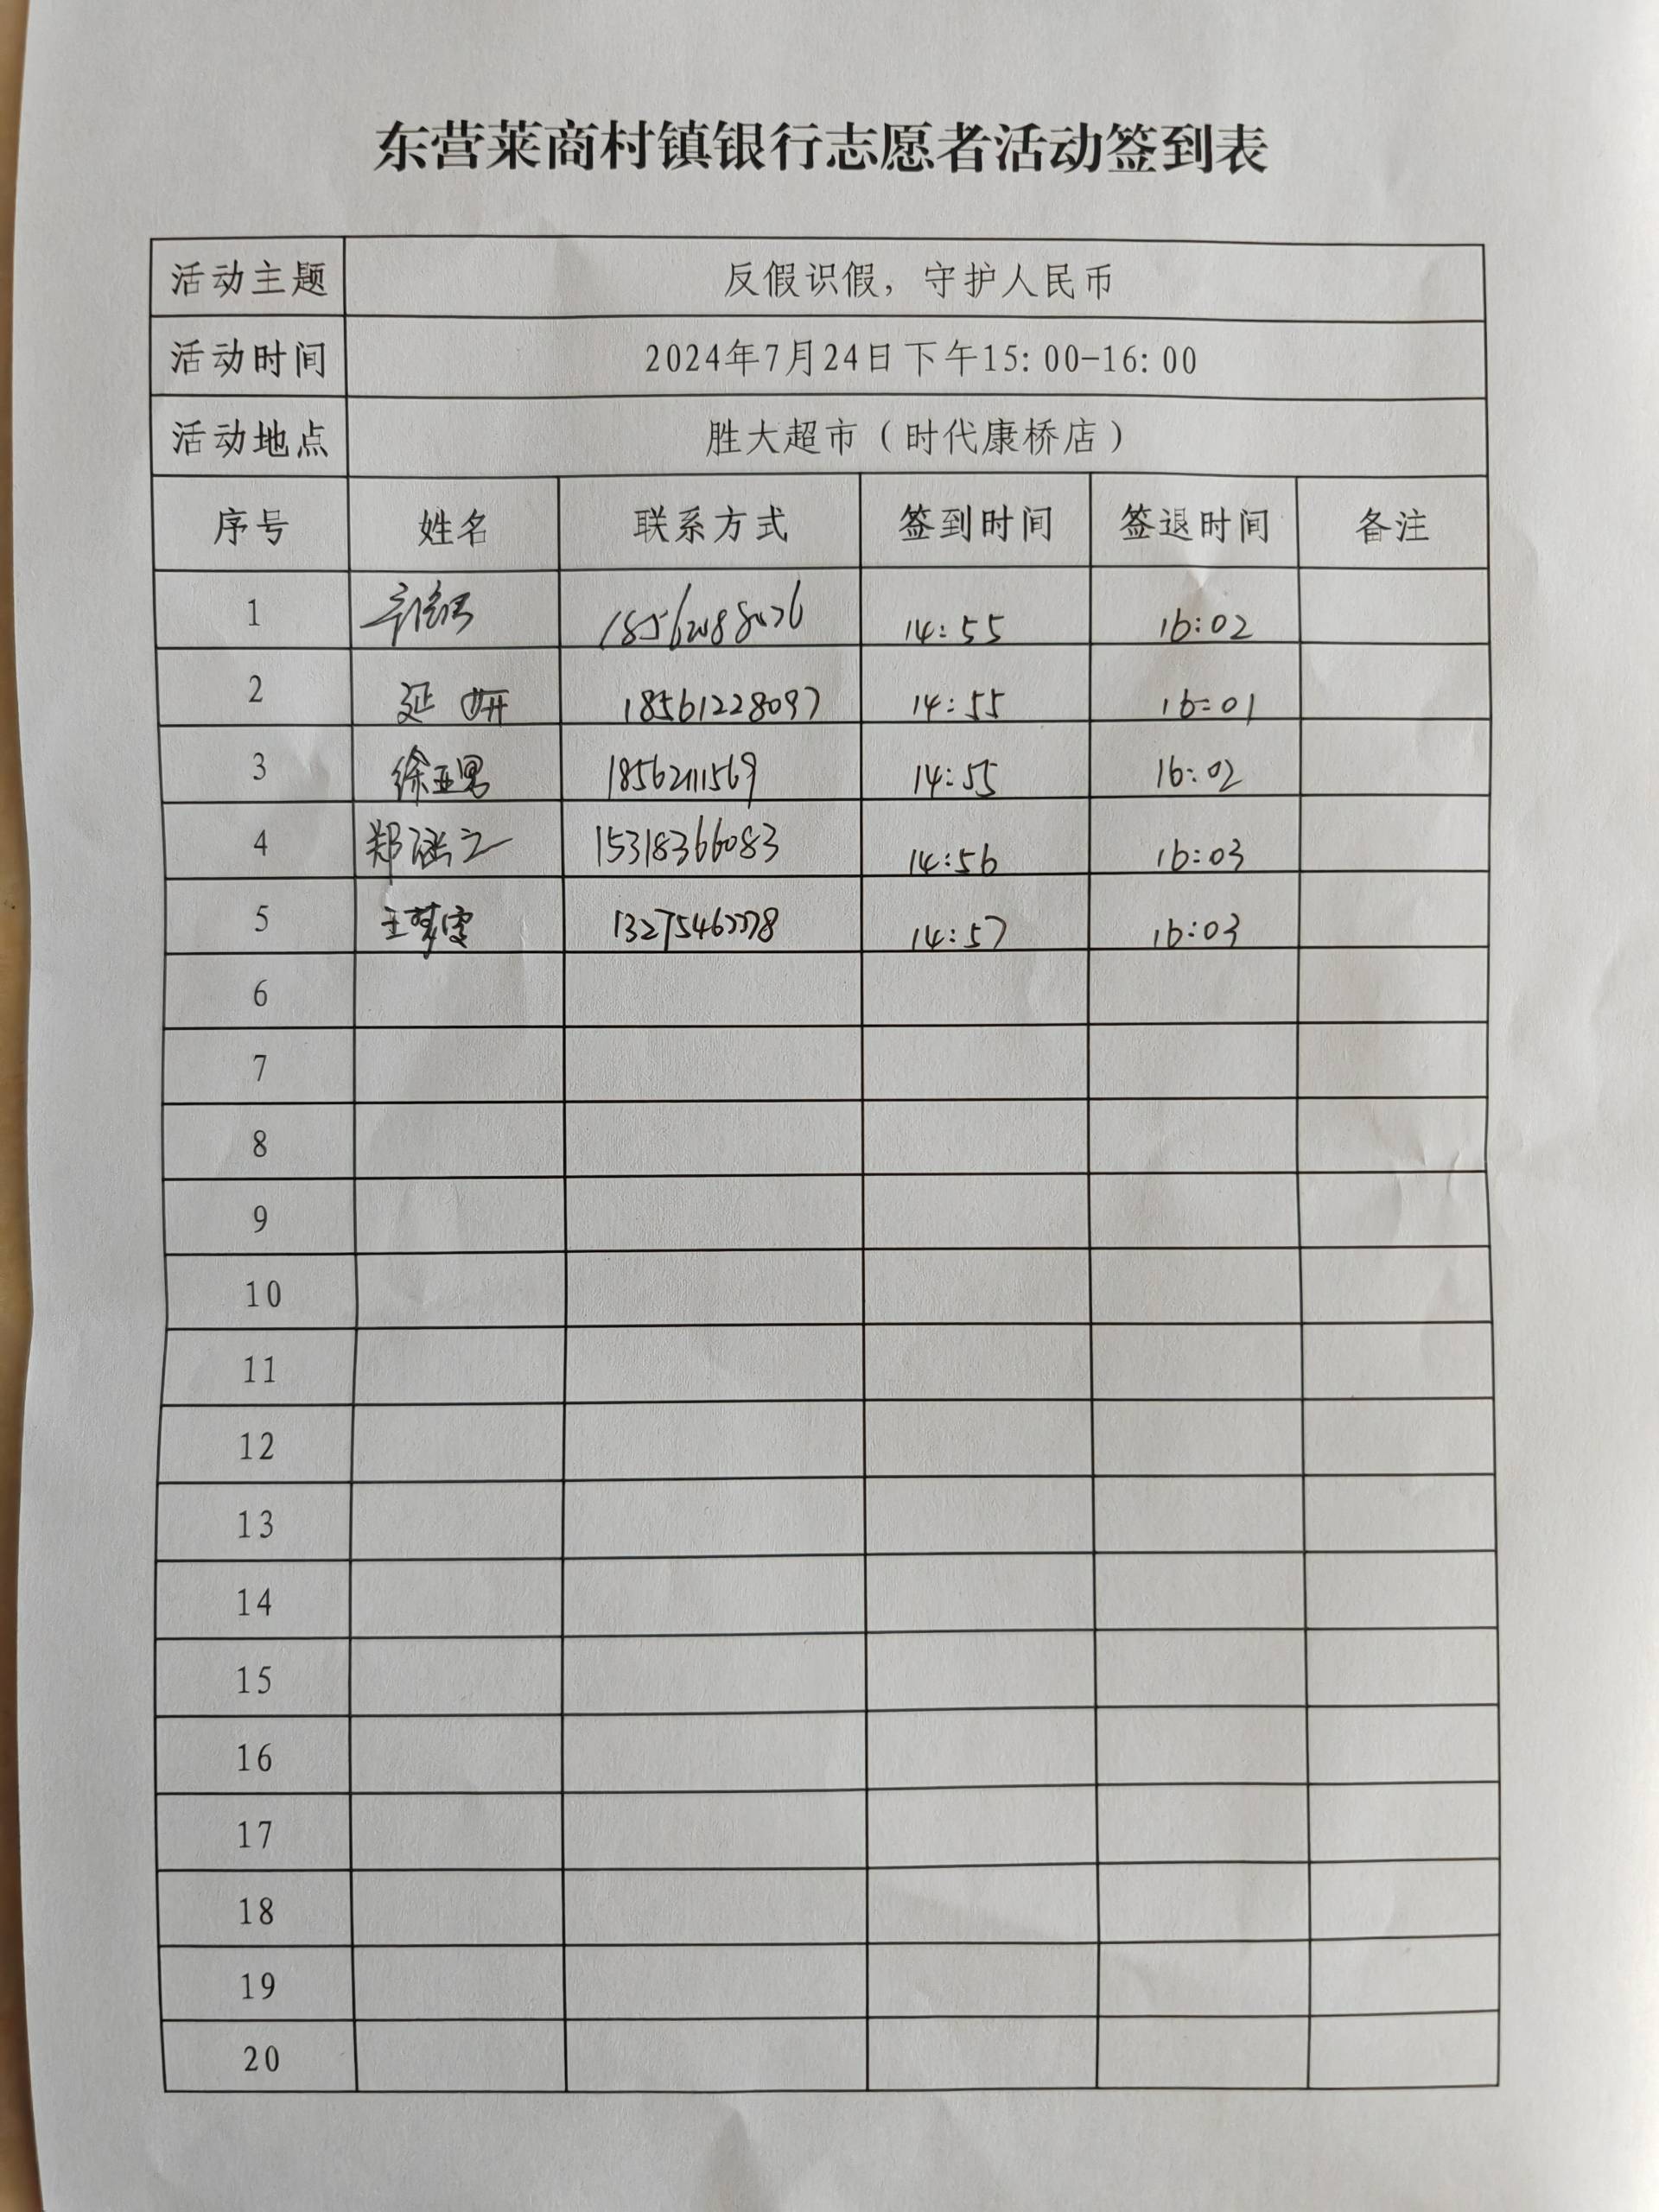 东营莱商村镇银行志愿者活动签到表
活动主题 反假识假，守护人民币
活动时间 2024年7月24日下午15：00-16：00
活动地点 胜大超市（时代康桥店）
序号 姓名 联系方式 签到时间 签退时间 备注
1 14:55 16:02
2 延妍 18561228097 14:55 16:01
3 徐亚男 18562111569 14:55 16:02
4 郑涵之 15318366083 14:56 16:03
5 王梦雯 14:57 16:03
6
7
8
9
10
11
12
13
14
15
16
17
18
19
20